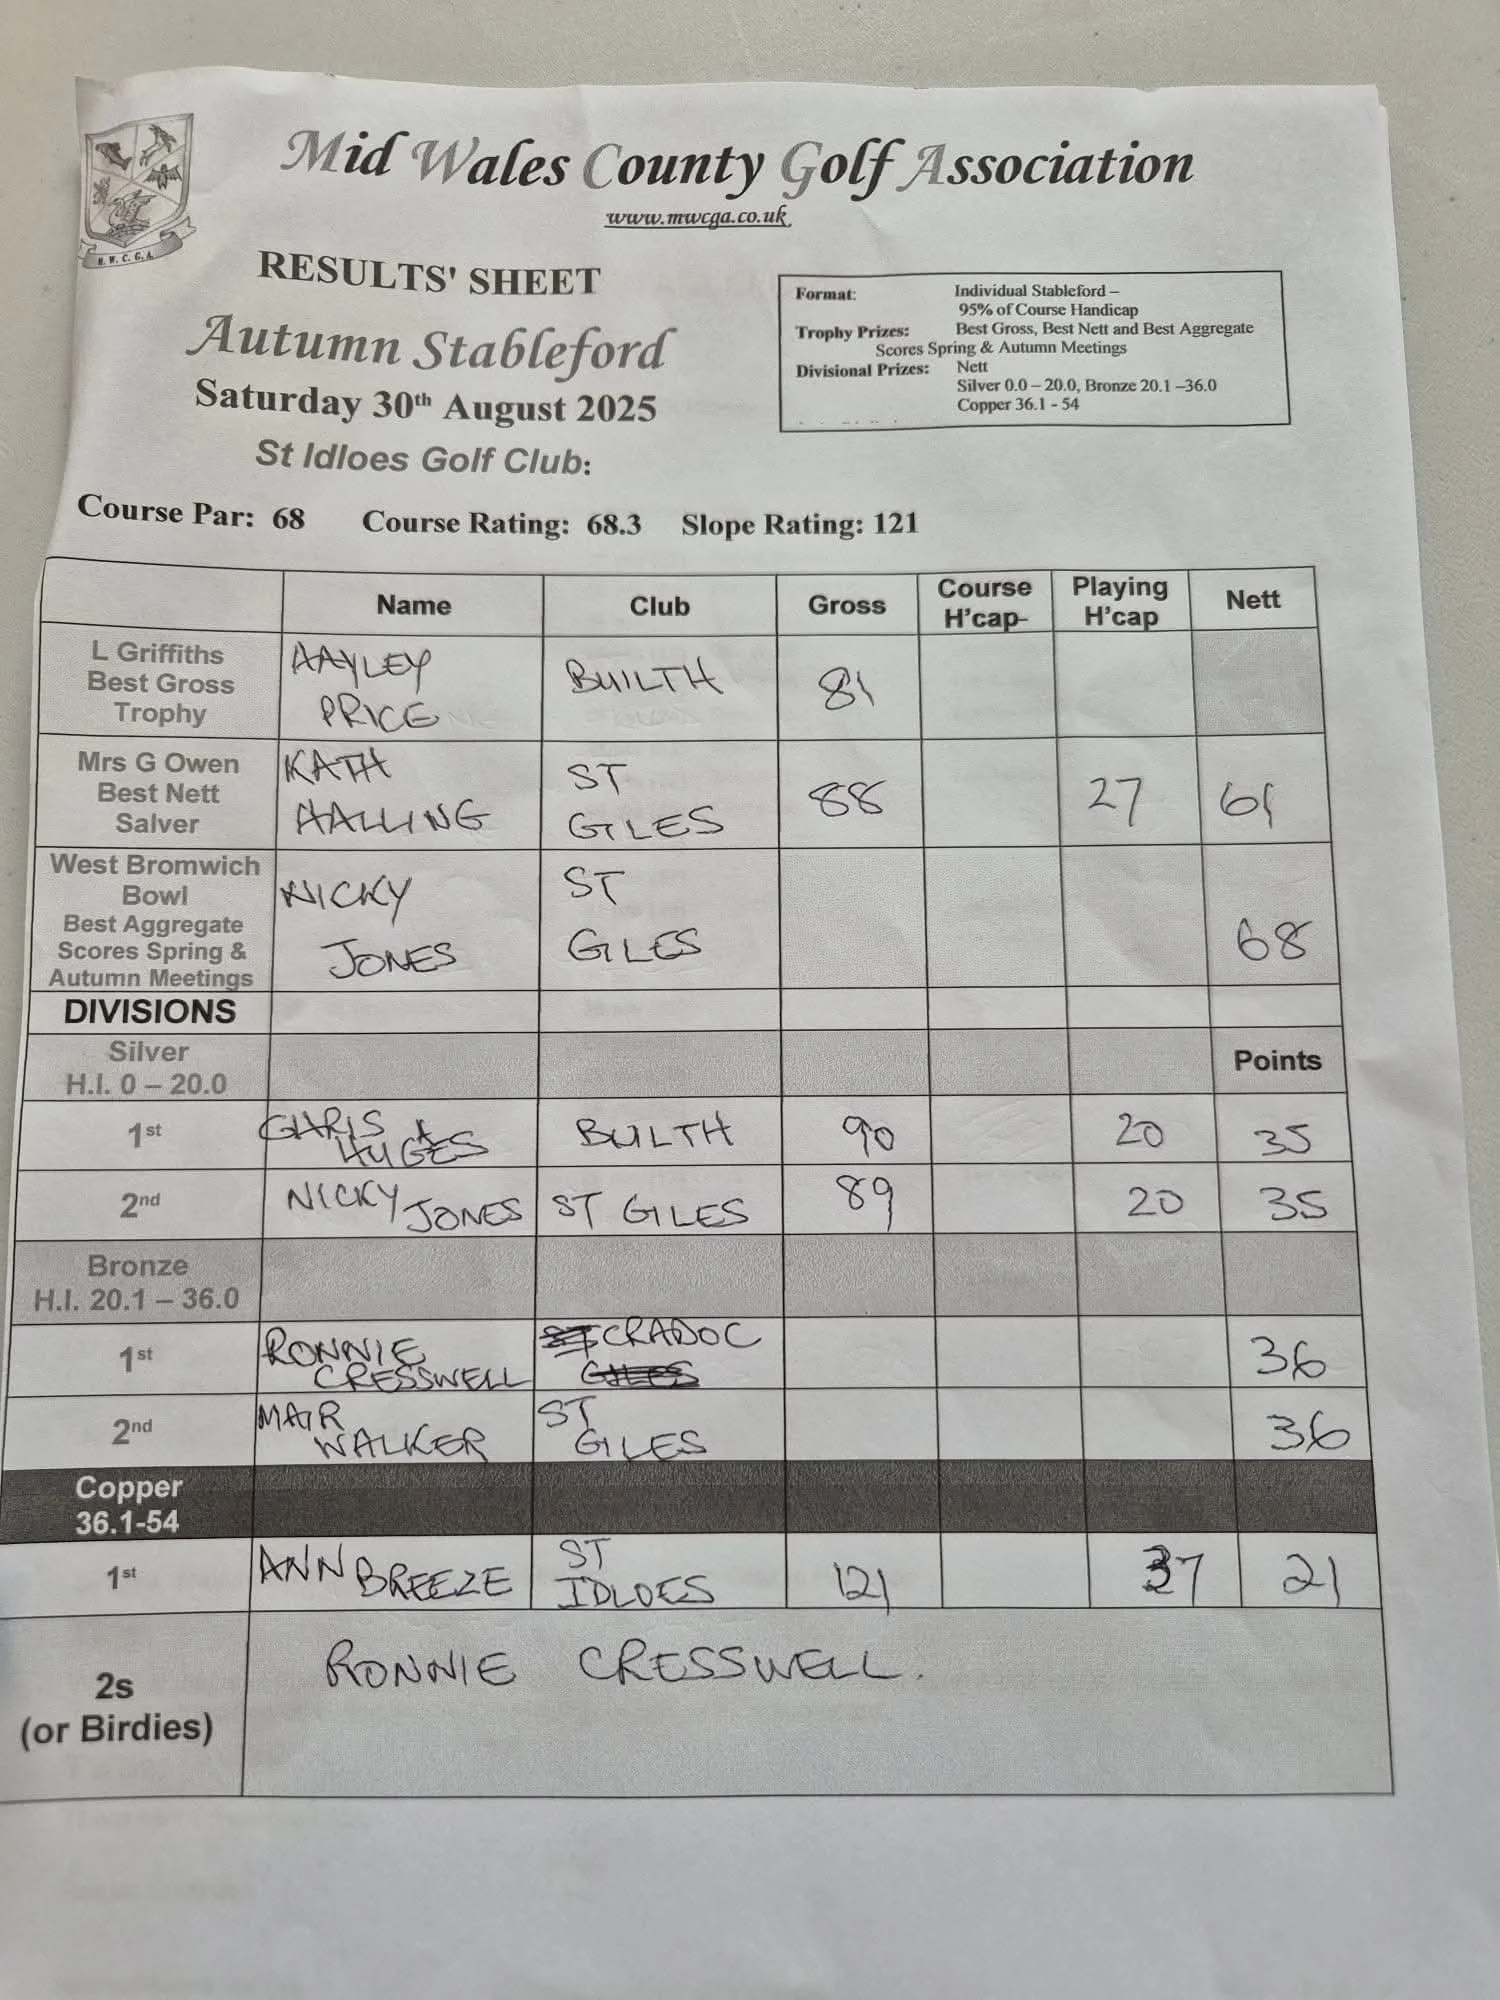 Mid Wales County Golf Association
www.mwcga.co.uk
M. W. C. G. A.
RESULTS' SHEET
Autumn Stableford
Saturday 30th August 2025
St Idloes Golf Club:
Format: Individual Stableford –
95% of Course Handicap
Trophy Prizes: Best Gross, Best Nett and Best Aggregate
Scores Spring & Autumn Meetings
Divisional Prizes: Nett
Silver 0.0 – 20.0, Bronze 20.1 –36.0
Copper 36.1 - 54
Course Par: 68 Course Rating: 68.3 Slope Rating: 121
Name Club Gross Course H'cap- Playing H'cap Nett
L Griffiths Best Gross Trophy HAYLEY PRICE BUILTH 81
Mrs G Owen Best Nett Salver KATH HALLING ST GILES 88 27 61
West Bromwich Bowl Best Aggregate Scores Spring & Autumn Meetings NICKY JONES ST GILES 68
DIVISIONS
Silver H.I. 0 – 20.0 Points
1st CHRIS HUGES BUILTH 90 20 35
2nd NICKY JONES ST GILES 89 20 35
Bronze H.I. 20.1 – 36.0
1st RONNIE CRESSWELL CRADOC 36
2nd MAIR WALKER ST GILES 36
Copper 36.1-54
1st ANN BREEZE ST IDLOES 121 37 21
2s (or Birdies) RONNIE CRESSWELL.